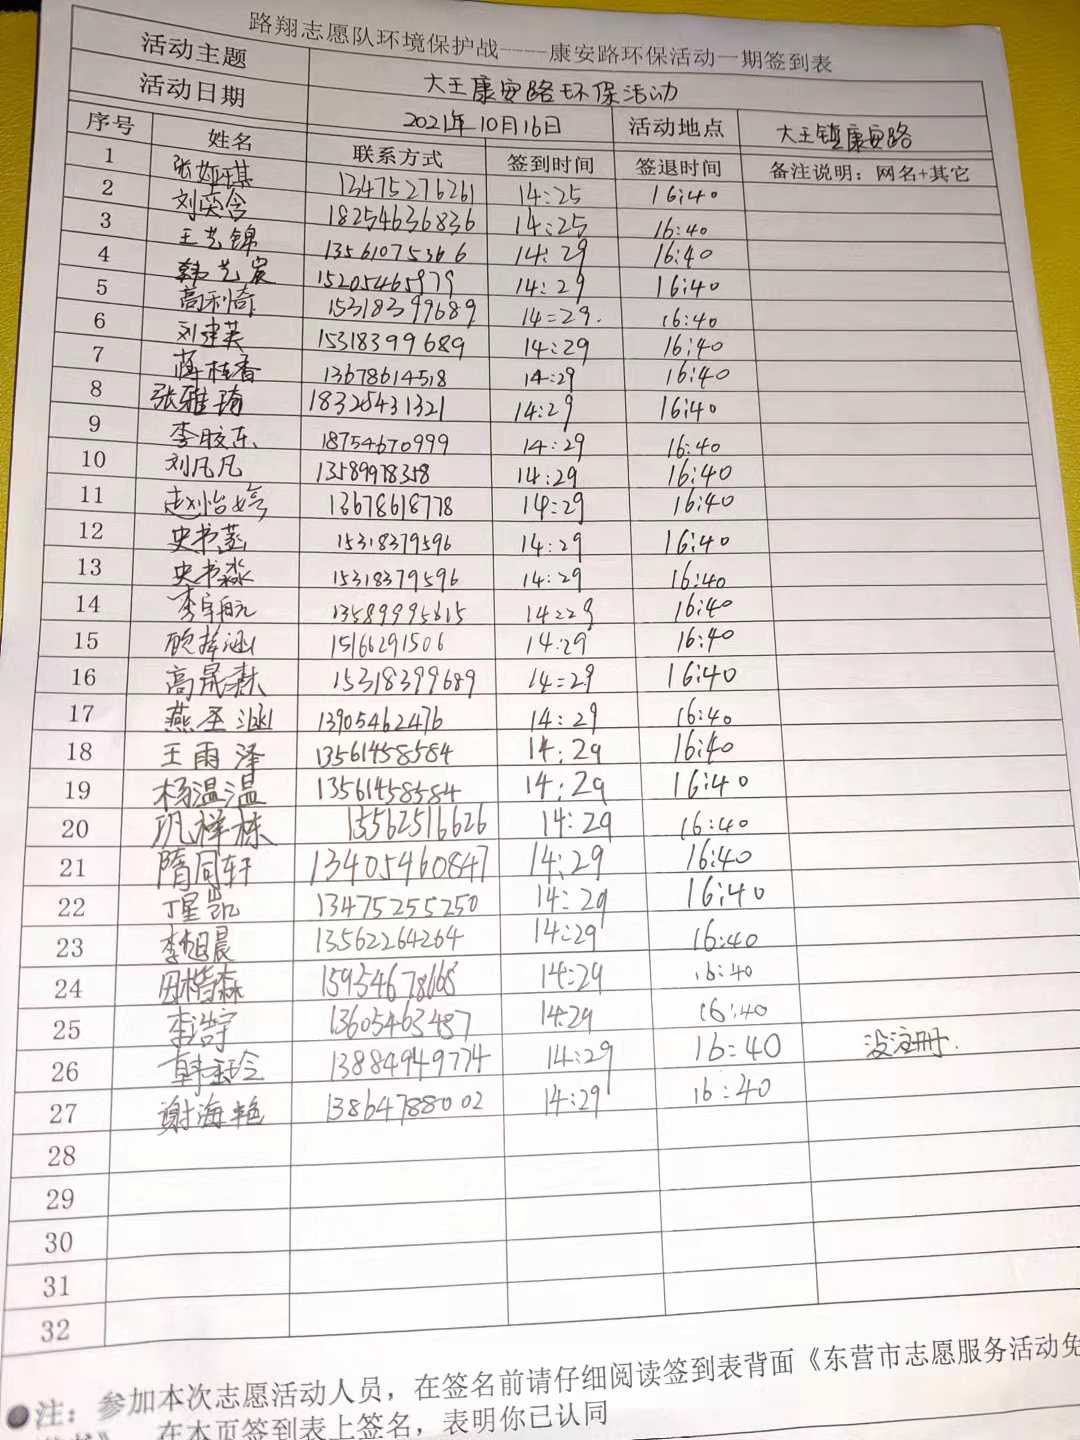 路翔志愿队环境保护战----康安路环保活动一期签到表
活动主题 大王康安路环保活动
活动日期 2021年10月16日 活动地点 大王镇康安路
序号 姓名 联系方式 签到时间 签退时间 备注说明：网名+其它
1 张娅琪 13475276261 14:25 16:40
2 刘奕含 18254636836 14:25 16:40
3 王艺锦 13561075366 14:29 16:40
4 韩艺宸 15205465979 14:29 16:40
5 高利奇 15318399689 14=29. 16:40
6 刘建英 15318399689 14:29 16:40
7 蒋桂香 13678614518 14:29 16:40
8 张雅琦 18325431321 14:29 16:40
9 李胶东 18754670999 14:29 16:40
10 刘凡凡 13589978358 14:29 16:40
11 赵怡婷 13678618778 14:29 16:40
12 史书蕊 15318379596 14:29 16:40
13 史书淼 15318379596 14:29 16:40
14 李宇航 13589995615 14:29 16:40
15 15166291506 14:29 16:40
16 高晟森 15318399689 14=29 16:40
17 燕圣涵 13905462476 14:29 16:40
18 王雨泽 13561458584 14:29 16:40
19 杨温温 13561458584 14:29 16:40
20 祥栋 15562516626 14:29 16:40
21 隋同轩 13405460847 14:29 16:40
22 丁星凯 13475255250 14:29 16:40
23 李旭晨 13562264264 14:29 16:40
24 田楷森 14:29 16:40
25 李浩宇 13605463487 14:29 16:40
26 韩玲 13884949774 14:29 16=40 没注册.
27 谢海艳 13864788002 14:29 16:40
28
29
30
31
32
●注：参加本次志愿活动人员，在签名前请仔细阅读签到表背面《东营市志愿服务活动免
在本页签到表上签名，表明你已认同